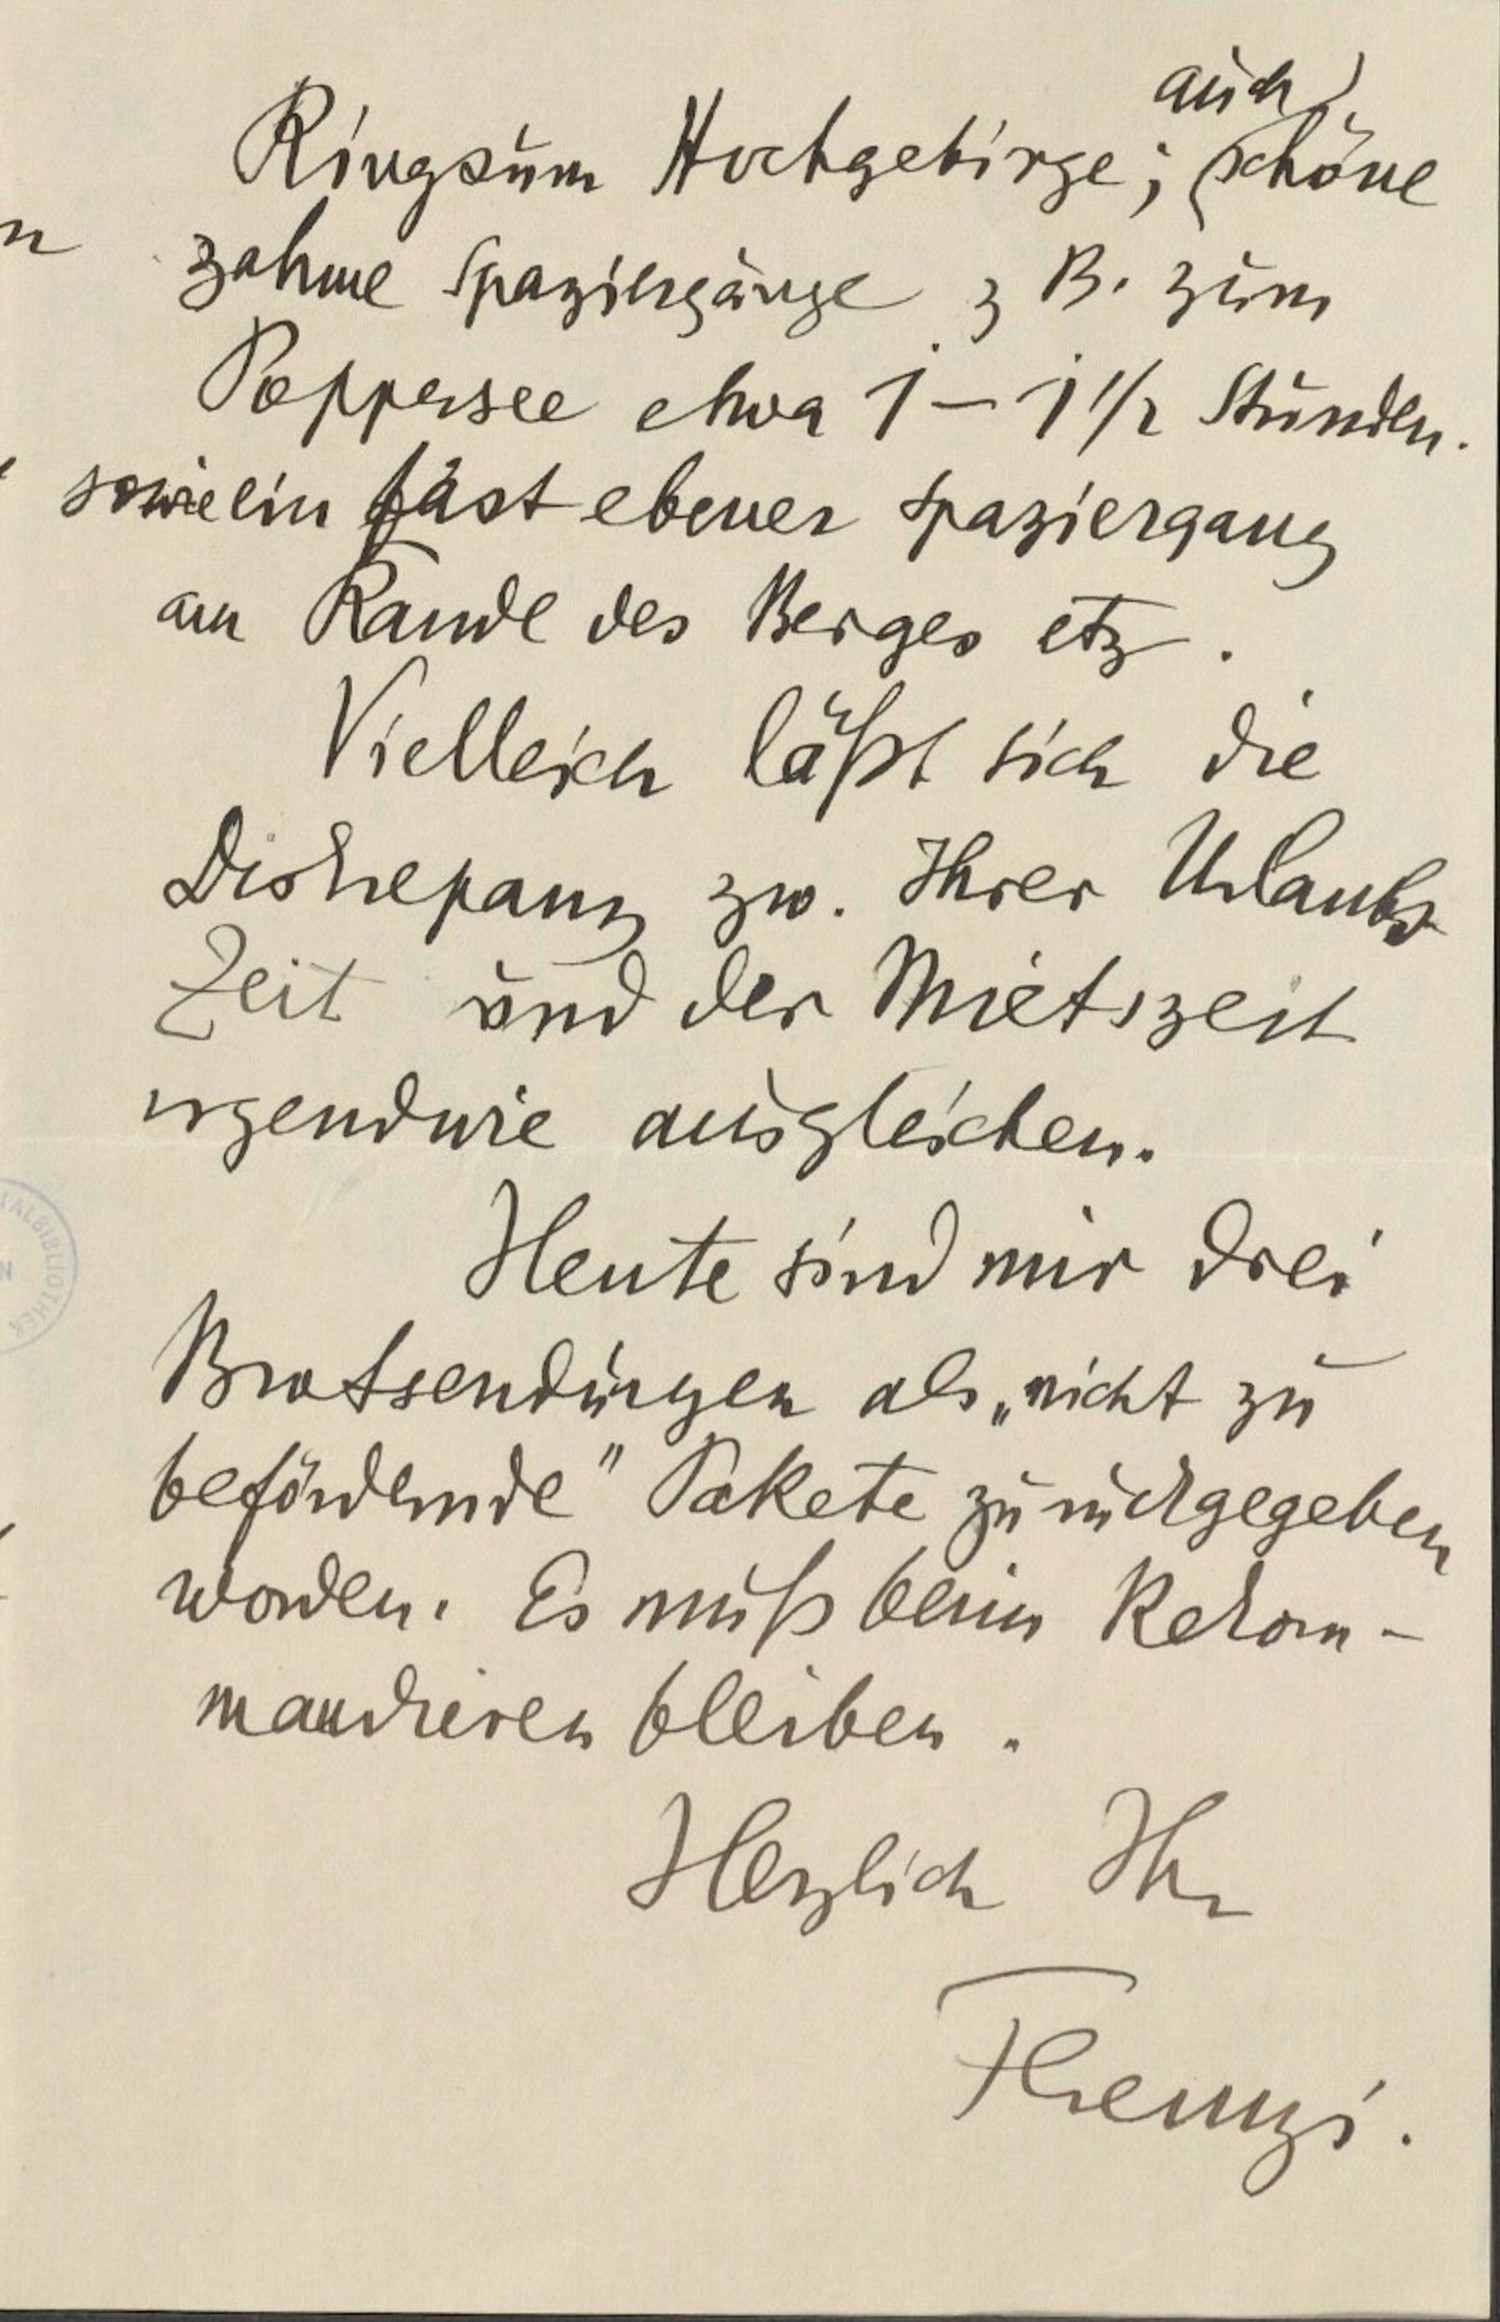 Ringsum Hochgebirge; auch schöne
zahme Spaziergänge z B. zum
Poppersee etwa 1 – 1 1/2 Stunden.
sowie ein fast ebener Spaziergang
am Rande des Berges etz.
Vielleich läßt sich die
Diskrepanz zw. Ihrer Urlaubs
Zeit und der Mietszeit
irgendwie ausgleichen.
Heute sind mir drei
Brotsendungen als „nicht zu
befördernde" Pakete zurückgegeben
worden. Es muß beim Rekom-
mandieren bleiben.
Herzlich Ihr
Ferenczi.